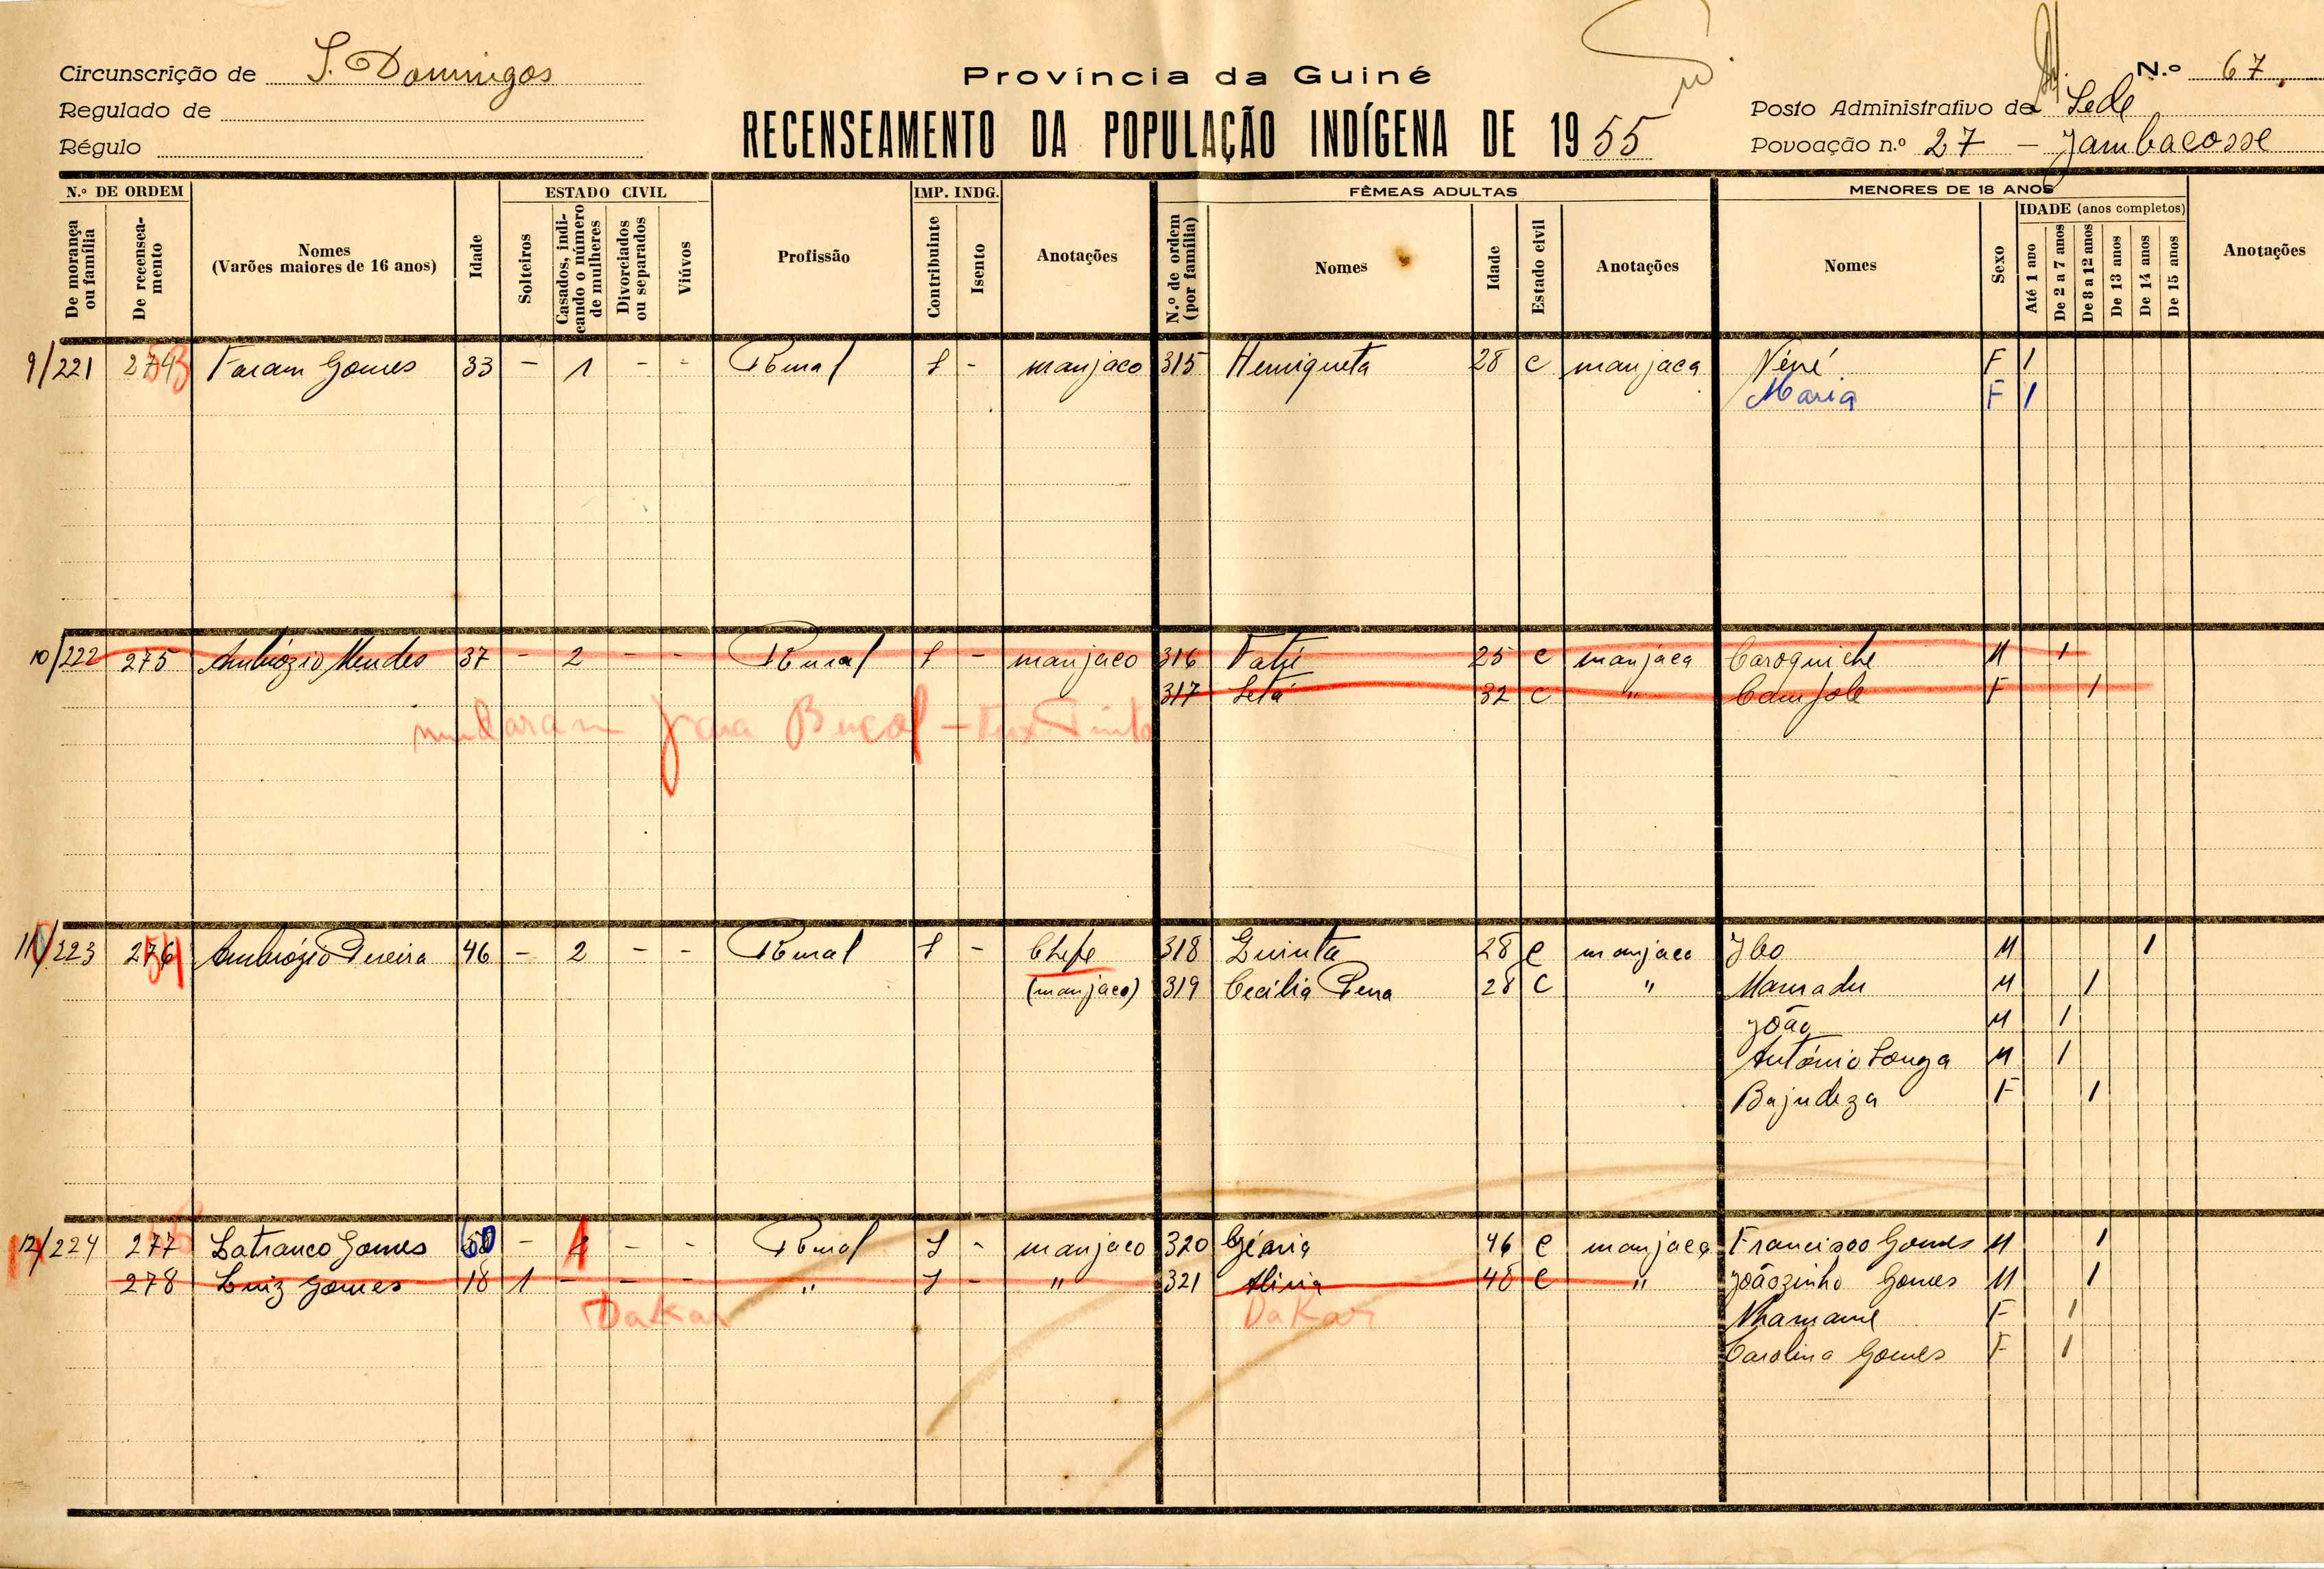 Circunscrição de S. Domingos
Regulado de
Régulo
Província da Guiné
RECENSEAMENTO DA POPULAÇÃO INDÍGENA DE 1955
N.º 67.
Posto Administrativo de Sede
Povoação n.º 27 - Jambacosse
N.º DE ORDEM ESTADO CIVIL IMP. INDG. FÊMEAS ADULTAS MENORES DE 18 ANOS
De morança ou família
De recenseamento
Nomes (Varões maiores de 16 anos)
Idade
Solteiros
Casados, indicando o número de mulheres
Divorciados ou separados
Viúvos
Profissão
Contribuinte
Isento
Anotações
N.º de ordem (por família)
Nomes
Idade
Estado civil
Anotações
Nomes
Sexo
IDADE (anos completos)
Até 1 ano
De 2 a 7 anos
De 8 a 12 anos
De 13 anos
De 14 anos
De 15 anos
Anotações
9/221 Faram Gomes 33 - 1 - - Rural 1 - manjaco 315 Henriqueta 28 C manjaca Néné F 1
Maria F 1
10/222 275 Ambrózio Mendes 37 - 2 - - Rural 1 - manjaco 316 25 C manjaca Caroquiche M 1
317 Setá 32 C " F 1
mudaram para Bucol
11/223 276 Ambrózio Pereira 46 - 2 - - Rural 1 - Chefe 318 Quinta 28 C manjaca Ibo M 1
(manjaco) 319 Cecília Pena 28 C " Mamadu M 1
João M 1
António Songa M 1
Bajudeza F 1
12/224 277 Latranco Gomes - - - Rural 1 - manjaco 320 46 C manjaca Francisco Gomes M 1
278 Luiz Gomes 18 1 - - - " 1 - " 321 Alinia 48 C " Joãozinho Gomes M 1
Dakar Dakar Nhamané F 1
Carolina Gomes F 1